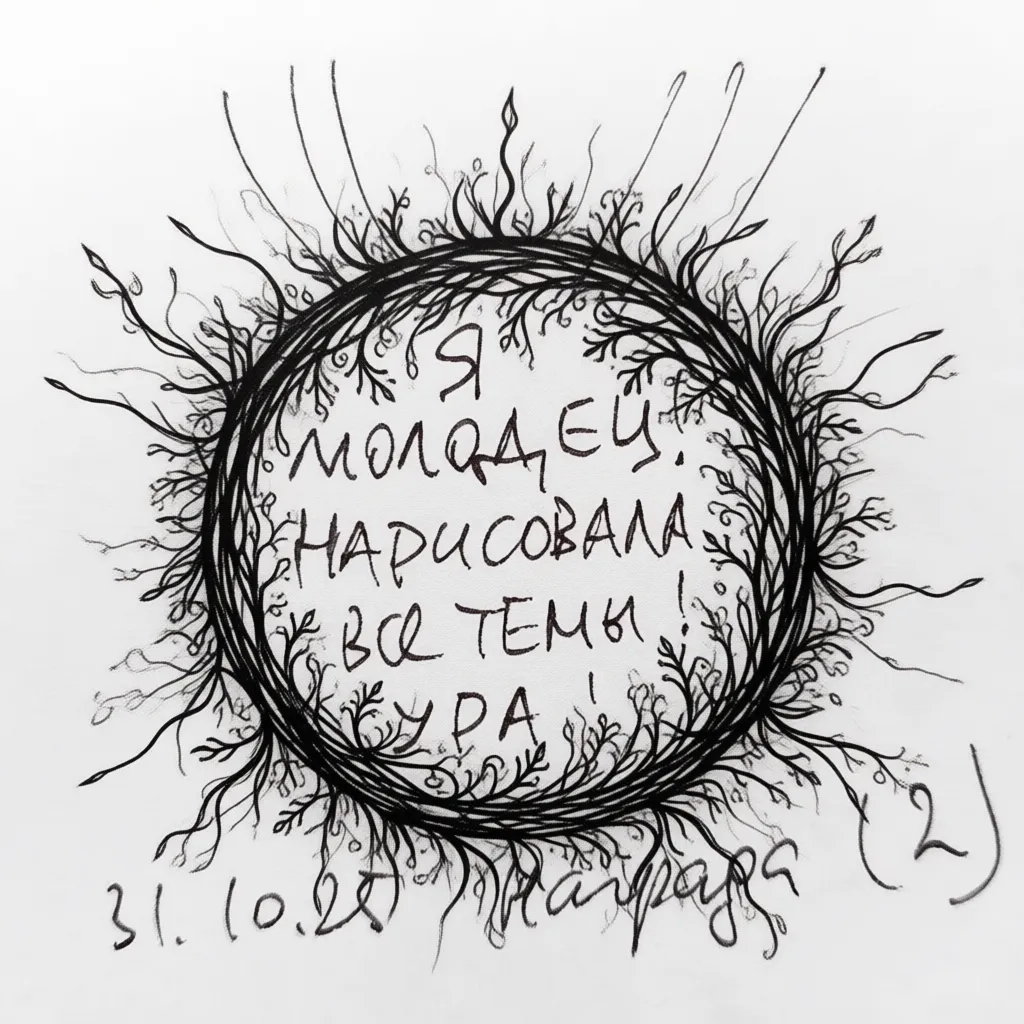 Я
МОЛОДЕЦ!
НАРИСОВАЛА
ВСЕ ТЕМЫ!
УРА!
31.10.25 Награда (2)